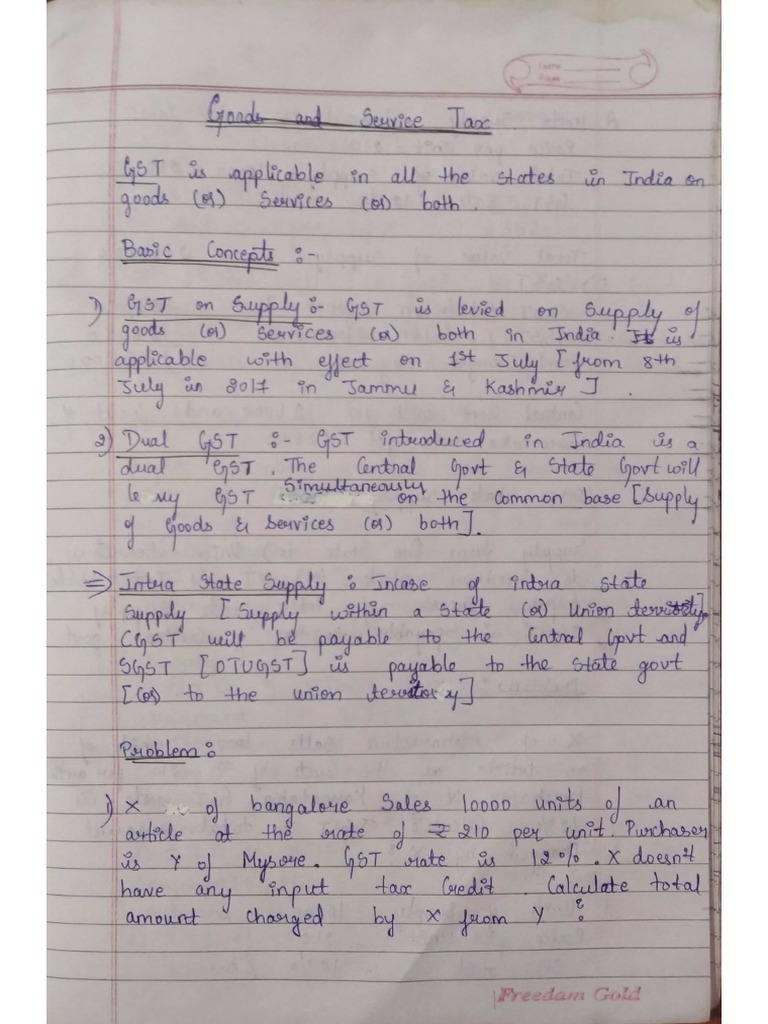 Goods and Service Tax
GST is applicable in all the states in India on
goods (or) Services (or) both.
Basic Concepts :-
1) GST on Supply :- GST is levied on Supply of
goods (or) services (or) both in India. It is
applicable with effect on 1st July [from 8th
July in 2017 in Jammu & Kashmir].
2) Dual GST :- GST introduced in India is a
dual GST. The Central Govt & State Govt will
levy GST Simultaneously on the common base [Supply
of Goods & Services (or) both].
⇒ Intra State Supply : Incase of intra State
Supply [Supply within a State (or) Union territory]
CGST will be payable to the Central Govt and
SGST [OTUGST] is payable to the State govt
[(or) to the union territory]
Problem :
1) X of bangalore Sales 10000 units of an
article at the rate of ₹ 210 per unit. Purchaser
is Y of Mysore. GST rate is 12%. X doesn't
have any input tax Credit. Calculate total
amount charged by X from Y ?
Freedam Gold